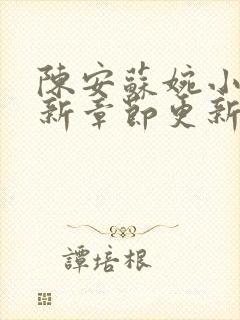 陳安蘇婉小
新章節更新
譚培根